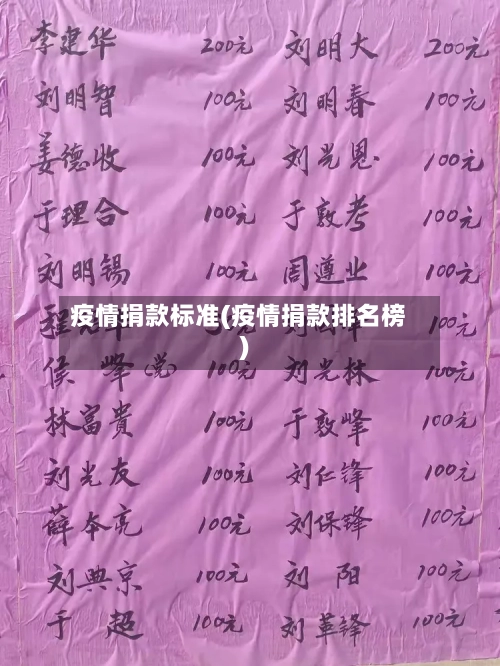 李建华 200元 刘明大 200元
刘明智 100元 刘明春 100元
姜德收 100元 刘光恩 100元
于理合 100元 于敦考 100元
刘明锡 100元 周遵业 100元
疫情捐款标准(疫情捐款排名榜
)
100元
侯峰(党) 100元 刘光林 100元
林富贵 100元 于敦峰 100元
刘光友 100元 刘仁锋 100元
薛本亮 100元 刘保锋 100元
刘典京 100元 刘阳 100元
于超 100元 刘革锋 100元